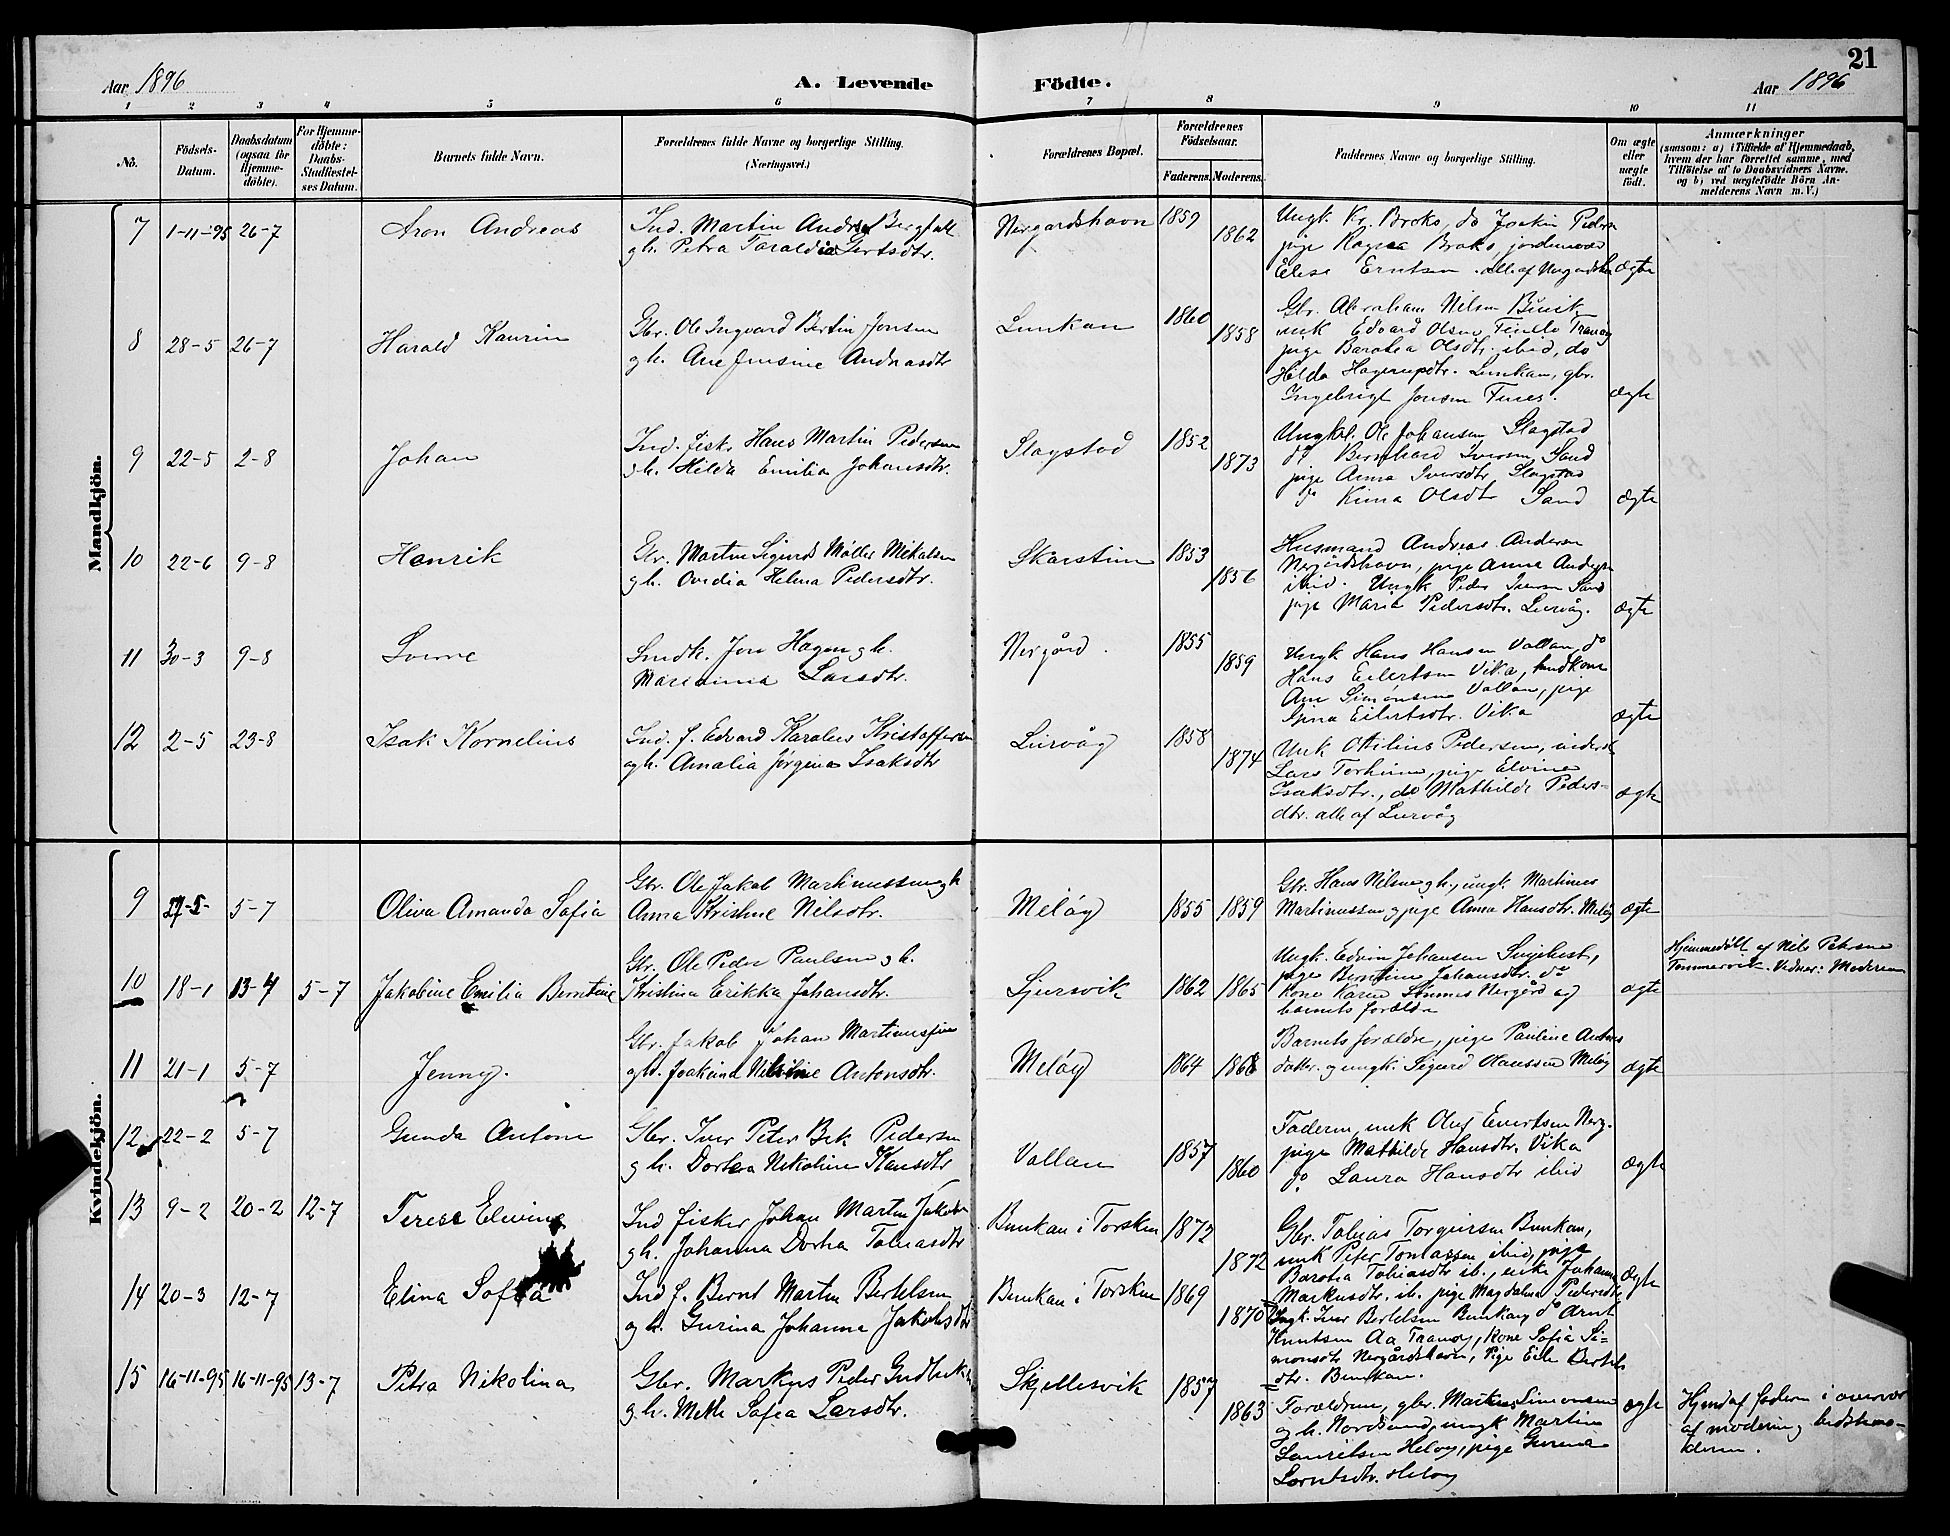 21
Aar 1896 A. Levende Födte. Aar 1896
1 2 3 4 5 6 7 8 9 10 11
No. Födsels-Datum. Daabsdatum (ogsaa for Hjemme-döbte). For Hjemme-döbte: Daabs-Stadfæstel-ses Datum. Barnets fulde Navn. Forældrenes fulde Navne og borgerlige Stilling. (Næringsvei.) Forældrenes Bopæl. Forældrenes Födselsaar. Faderens. Moderens. Faddernes Navne og borgerlige Stilling. Om ægte eller uægte födt. Anmærkninger (saasom: a) i Tilfælde af Hjemmedaab, hvem der har forrettet samme, med Tilföielse af to Daabsvidners Navne. og b) ved uægtefödte Börn An-melderens Navn m. V.)
Mandkjön.
7 1-11-95 26-7 Aron Andreas Ind. Martin Andreas Bergfall
gh. Petra Taraldia Gertsdtr.
Nergardshavn 1859 1862
Ungk Kr. Broks, do Joakin Peders
pige Ragna Broks, jordemoder
Elise Erntsen. alle af Nergardsh ægte
8 28-5 26-7 Harald Kaurin Gbr. Ole Ingvard Bertin Jonsen
gh. Ane Jensine Andreasdtr
Lemkan 1860 1858
Gbr. Abraham Nilsen
uk Edvard Olsen Tranøy
pige Barohea Olsdtr. ibid, do
Hilda Hagerupdtr. Lemkan, gbr.
Ingebrigt Jonsen Fines. ægte
9 22-5 2-8 Johan Ind. fisk. Hans Martin Pedersen
gh. Hilda Emilia Johansdtr.
Slagstad 1852 1873
Ungkl. Ole Johansen Slagstad
do Bernhard Iversen Sand
pige Anna Iversdtr Slagstad
do Kima Olsdtr Sand ægte
10 22-6 9-8 Henrik Gbr. Martin Sigurd Møller Mikalsen
gh. Ovedia Helma Pedersdtr.
Skarstein 1853 1856
Husmand Andreas Andersen
Nergårdshavn, pige Anna Anders
ibid. Ungk Peder Iversen Sand
pige Maria Pedersdtr. Lervåg. ægte
11 30-3 9-8 Sverre Smdk. Jon Hagen gh.
Marianna Larsdtr.
Nergård. 1855 1859
Ungk Hans Hansen Vallan, do
Hans Eilertsen Vika,
Ane Simonsen Vallan, pige
Gjina Eilertsdtr. Vika ægte
12 2-5 23-8 Isak Kornelius Ind. f. Edvard Karolius Kristoffersen
gh. Amalia Jørgine Isaksdtr
Lervåg 1858 1874
Unk Ottilius Pedersen, inderst
Lars Torheim, pige Elvine
Isaksdtr., do Mathilde Peders-
dtr. alle af Lervåg ægte
Kvindekjön.
9 27-5- 5-7 Oliva Amanda Sofia Gbr. Ole Jakob Martinussen gh
Anna Kristine Nilsdtr.
Meløy 1855 1859
Gbr. Hans Nilsen gh., ungk. Martines
Martinussen, pige Anna Hansdtr. Meløy ægte
10 18-1 13-4 5-7 Jakobine Emilia Berntine Gbr. Ole Peder Paulsen gh.
Kristina Erikka Johansdtr.
1862 1865
Ungk. Edvin Johansen
pige Berntine Johansdtr. do
kone Karen Simmes Nergård og
barnets forældre ægte
Hjemmedøbt af Nils Petersen
Tommervik. Vidner: Moderen
11 21-1 5-7 Jenny. Gbr. Jakob Johan
gh. Joakina Antonsdtr.
Meløy 1864 1868
Barnets forældre, pige Pauline Antons
datter. og ungk. Sigurd Olaussen Meløy ægte
12 22-2 5-7 Gunda Antone Gbr. Iver Peter Bek Pedersen
gh. Dorthea Nikoline Hansdtr
Vallan 1857 1860
Faderen, unk Oluf Evertsen Nerg.
pige Mathilde Hansdtr. Vika
do Laura Hansdtr ibid ægte
13 9-2 20-2 12-7 Terese Elevine Ind fisker Johan Martin Jakobs
gh. Johanna Dorthea Tobiasdtr
Bunkan i Torsken 1872 1872
Gbr. Tobias Torgersen Bunkan,
unk Peter Tomassen ibid, pige
Barohea Tobiasdtr ib., enke Johanna
Markusdtr. ib. pige Magdalena Pedersdtr ægte
14 20-3 12-7 Elina Sofia Ind f. Bernt Martin Bertelsen
gh. Gurina Johanna Jakobsdtr
Bunkan i Torsken 1869 1870
Ungk. Iver Bertelsen Bunkan, do Arnt
Knutsen Aa Tranøy, kone Sofia Si-
monsdtr Nergårdshavn, Pige Eile Bertels
dtr. Bunkan.
15 16-11-95 16-11-95 13-7 Petra Nikolina Gbr. Markus Peder
gh. Mette Sofia Larsdtr.
Skjellesvik 1857 1863
Forældrene, gbr. Markus Simonsen
gh. Nordsund, ungk Martin
Lauritsen Heløy, pige
Lorntsdtr. Heløy ægte
Hjemd af faderen i overvær
af moderen, bedstemo-
deren.